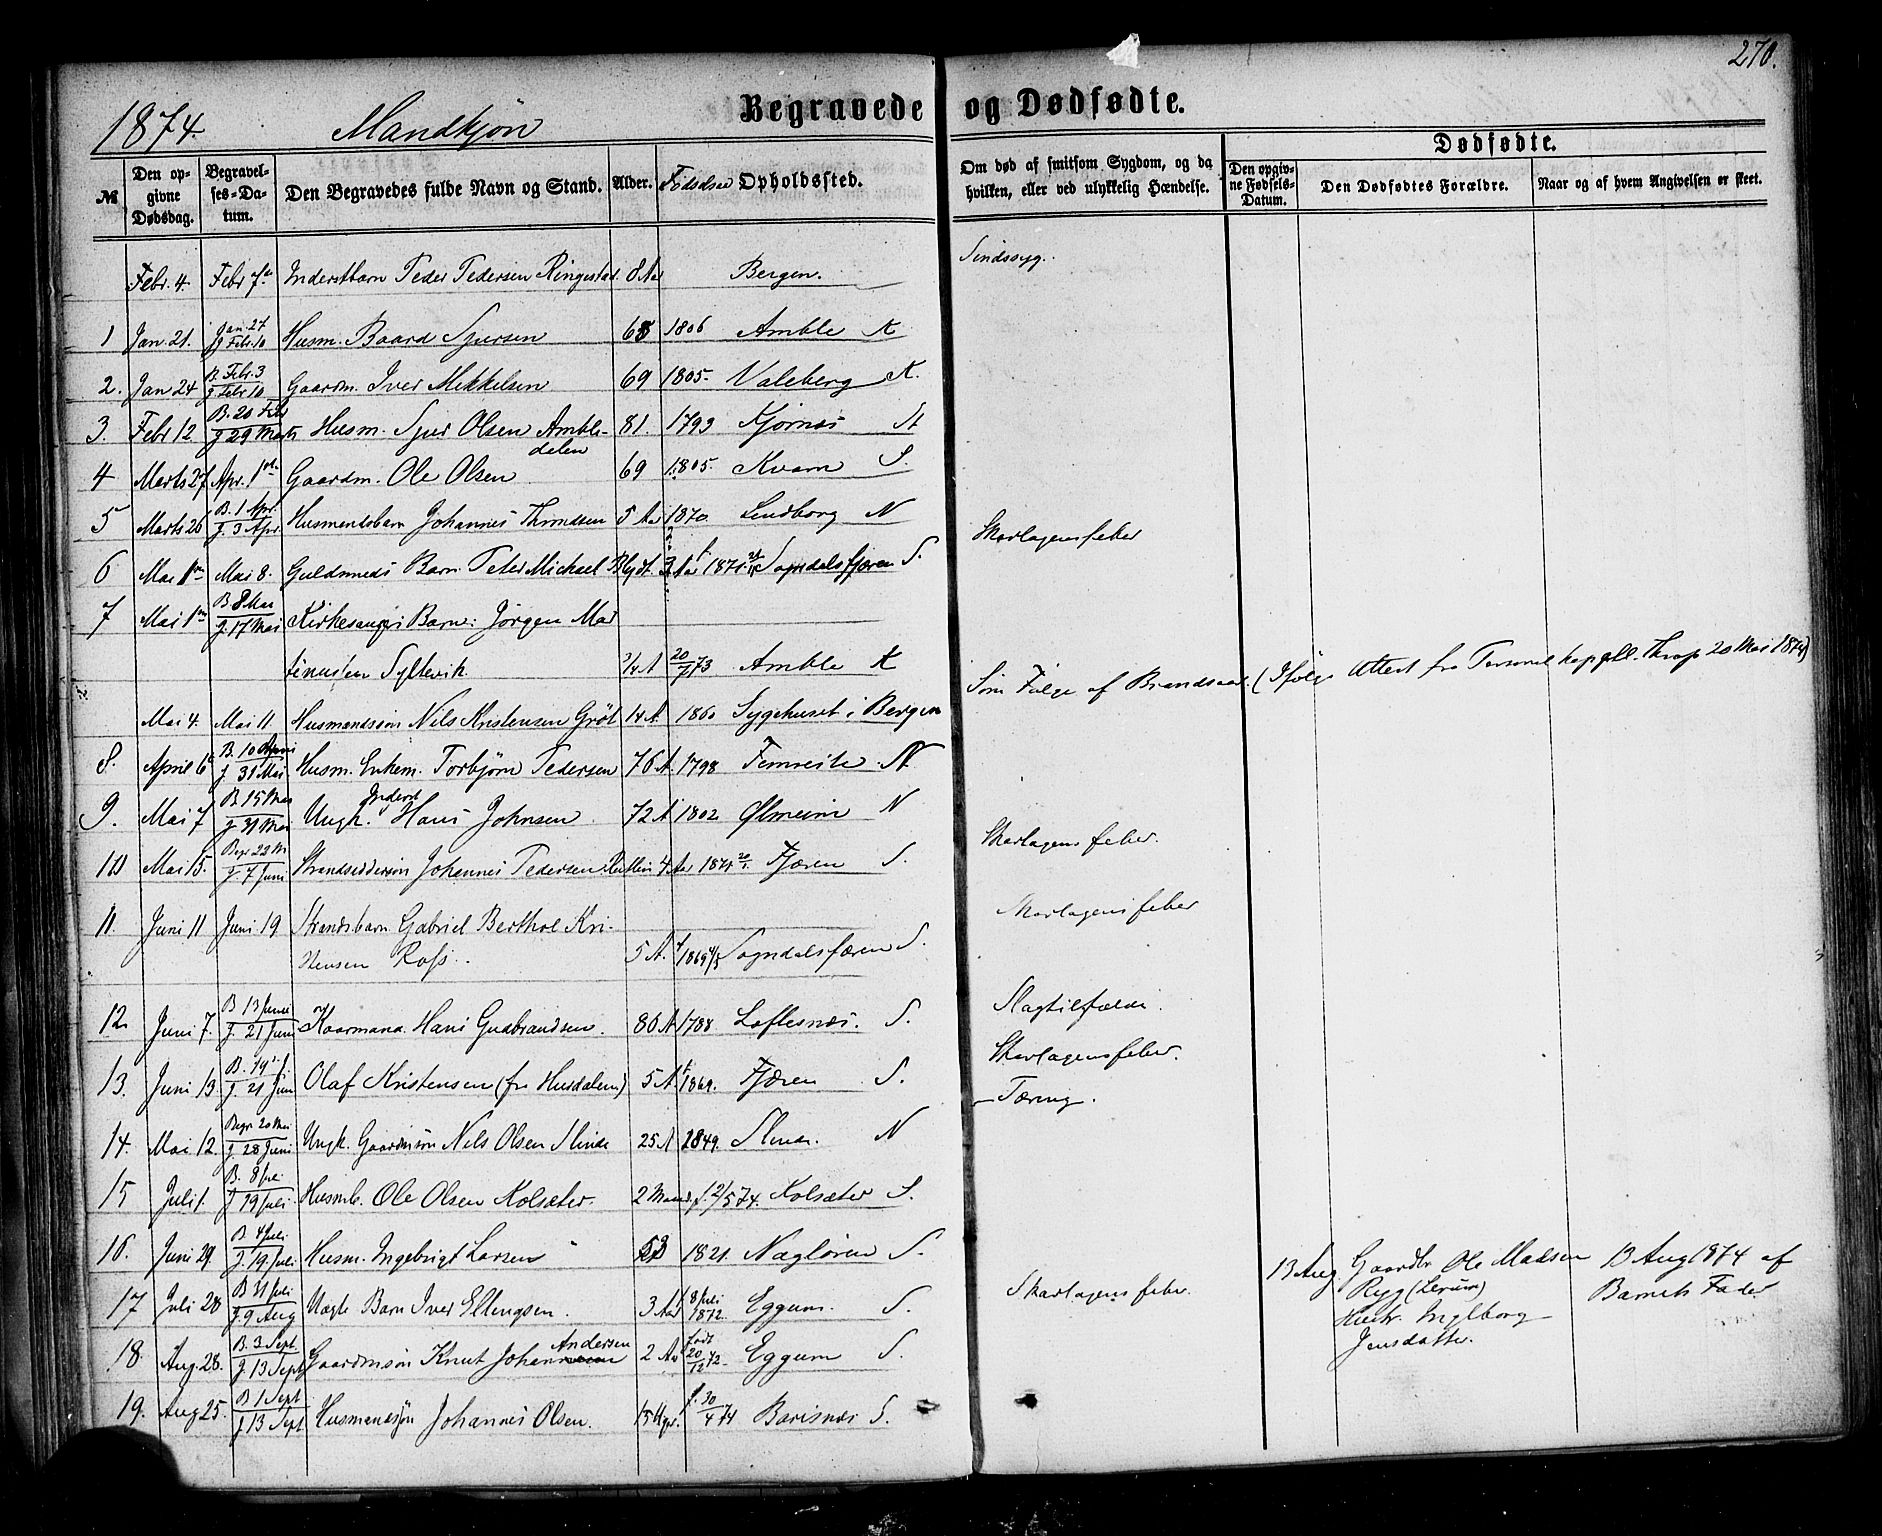 270.
1874. Mandkjøn Begravede og Dødfødte.
№ Den opgivne Dødsdag. Begravelses-Datum. Den Begravedes fulde Navn og Stand. Alder. Fødselsaar Opholdssted. Om død af smitsom Sygdom, og da hvilken, eller ved ulykkelig Hændelse. Dødfødte. Den opgivne Fødsels-Datum. Den Dødfødtes Forældre. Naar og af hvem Angivelsen er skeet.
Febr. 4. Febr 7de Inderstbarn Peder Pedersen Ringestad. 8 Aar Bergen. Sindssyg.
1 Jan. 21. Jan. 27 J. Febr. 10 Husm. Baard Sjursen 68 1806 Amble K
2. Jan 24 B. Febr. 3 J. Febr 10 Gaardm. Iver Mikkelsen 69 1805. Valeberg K.
3. Febr 12 B. 20 Feb J 29 Marts Husm. Sjur Olsen Ambledalen 81. 1793 Kjørnæs
4 Marts 27 Apr. 1ste Gaardm. Ole Olsen 69 1805. Kvam S.
5 Marts 26 B. 1 Apr. J. 3 Apr Husmandsbarn Johannes Thrudsen 5 Aar 1870. Lindborg N Skarlagensfeber
6 Mai 1ste Mai 8. Guldsmeds Barn Peter Michael Blydt. 3 Aar 1871. Sogndalsfjæren S.
7 Mai 1ste B 8 Mai J. 17 Mai Kirkesangers Barn: Jørgen Martinusen Sylterik. 3/4 A 20/7 73 Amble K
Mai 4. Mai 11 Husmandssøn Nils Kristensen Grøt 14 A 1860 Sygehuset i Bergen Som Følge af Brandsaar. (Ifølge Attest fra Personel kapell. Thrap 20 Mai 1874)
8. April 6 B. 10 April J. 31 Mai Husm. Enkem. Torbjørn Pedersen 76 A. 1798 Fimreite N
9. Mai 7 B 15 Mai J. 31 Mai Ungk. Inderst Hans Johnsen 72 A 1802 Ølmeim N
10 Mai 15. Begr 22 M J 7 Juni Strandsiddersøn Johannes Pedersen 4 Aar 1871 Fjæren S. Skarlagensfeber.
11. Juni 11 Juni 19 Strandsbarn Gabriel Berthol Kristensen Rofs. 5 A. 1869 Sogndalsfæren S. Skarlagensfeber
12. Juni 7. B 13 Juni J. 21 Juni Kaarmand Hans Gudbrandsen. 86 A 1788 Loftesnæs. S. Slagtilfælde.
13. Juni 13 B. 19 J. 21 Juni Olaf Kristensen (fra Husdalen) 5 A. 1869. Fjæren S. Skarlagensfeber.
14. Mai 12. Begr 20 Mai J. 28 Juni Ungk. Gaardmsøn Nils Olsen Slinde 25 A 1849. Slinde. N Tæring.
15 Juli 1. B. 8 Juli J 19 Juli Husmb. Ole Olsen Kolsæter. 2 Maan. f. 2/5 74. Kolsæter S.
16. Juni 29. B 4 Juli. J. 19. Juli Husm. Ingebrigt Larsen 53 1821. Nagløren S.
17 Juli 28 B 31 Juli J. 9 Aug Uægte Barn Iver Ellingsen. 3 Aar 8 Juli 1872. Eggum. S. Skarlagensfeber.
13 Aug Gaardbr Ole Madsen Ryg (Lerum) Hustr. Ingeborg Jensdatter. 13 Aug 1874 af Barnets Fader
18. Aug. 28. B. 3 Sept. J. 13 Sept Gaardmsøn Knut Johannesen Andersen 2 Aar født 20/12 72. Eggum S.
19. Aug 25. B 1 Sept J 13 Sept Husmandssøn Johannes Olsen. 15 Uger. f. 30/4 74 Barsnæs S.